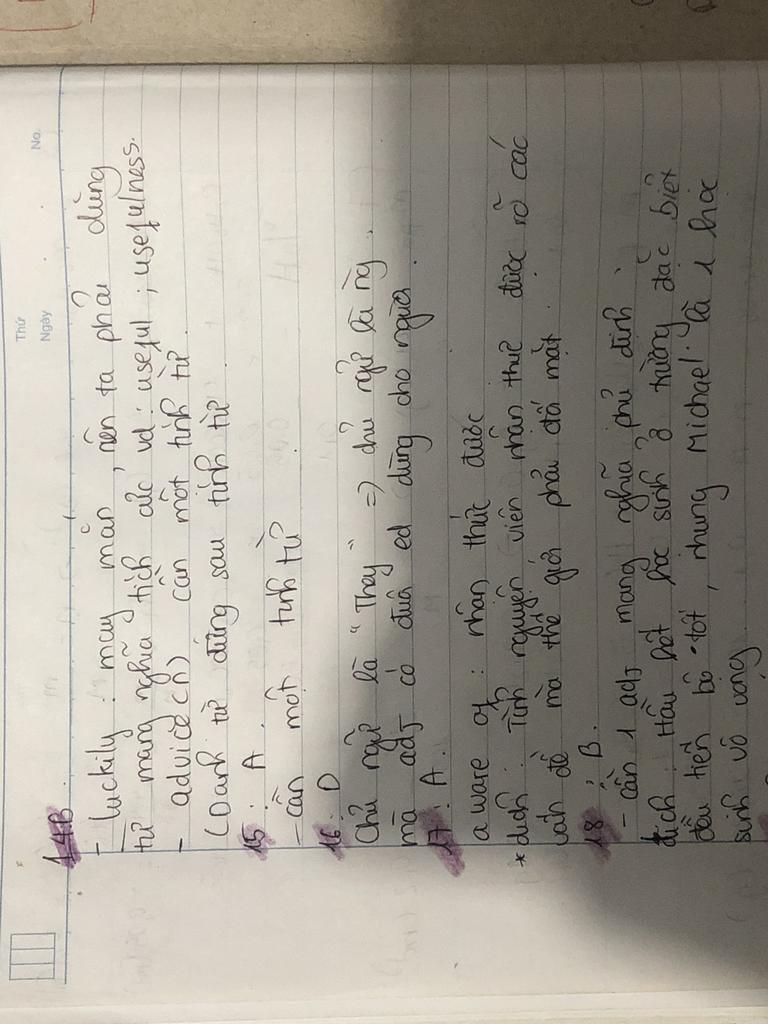 Thứ
Ngày
No.
14B.
- luckily : may mắn , nên ta phải dùng
từ mang nghĩa tích cực vd : useful ; usefulness.
- advice (n) cần một tính từ
(Danh từ đứng sau tính từ
15 : A .
- cần một tính từ
16 : D
Chủ ngữ là " They " => chủ ngữ là ng .
mà adj có đuôi ed dùng cho người .
17 : A .
aware of : nhận thức được
* dịch : Tình nguyện viên nhận thức được rõ các
vấn đề mà thế giới phải đối mặt .
18 : B .
- cần 1 adj mang nghĩa phủ định .
dịch : Hầu hết học sinh ở trường đặc biệt
đều tiến bộ tốt , nhưng Michael là 1 học
sinh vô vọng